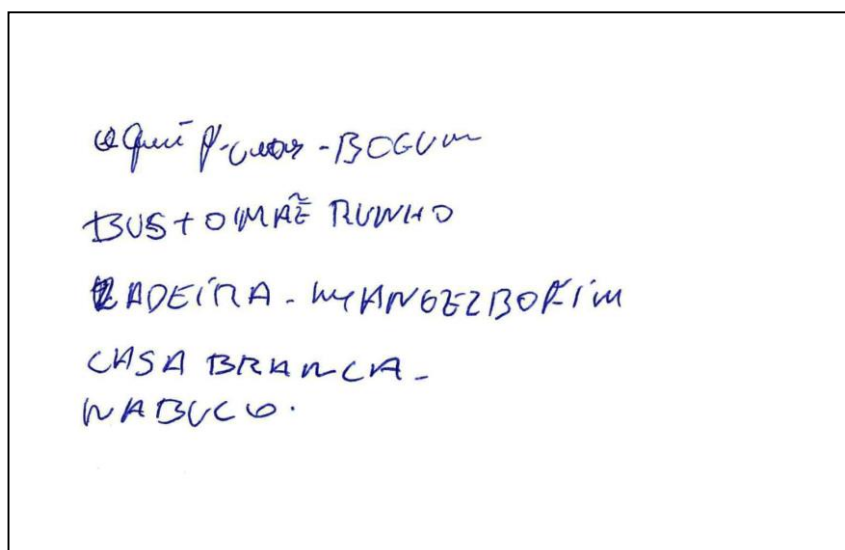 - BOGUM
BUSTO MÃE RUNHO
LADEIRA - MANOEL BOFIM
CASA BRANCA -
NABUCO.